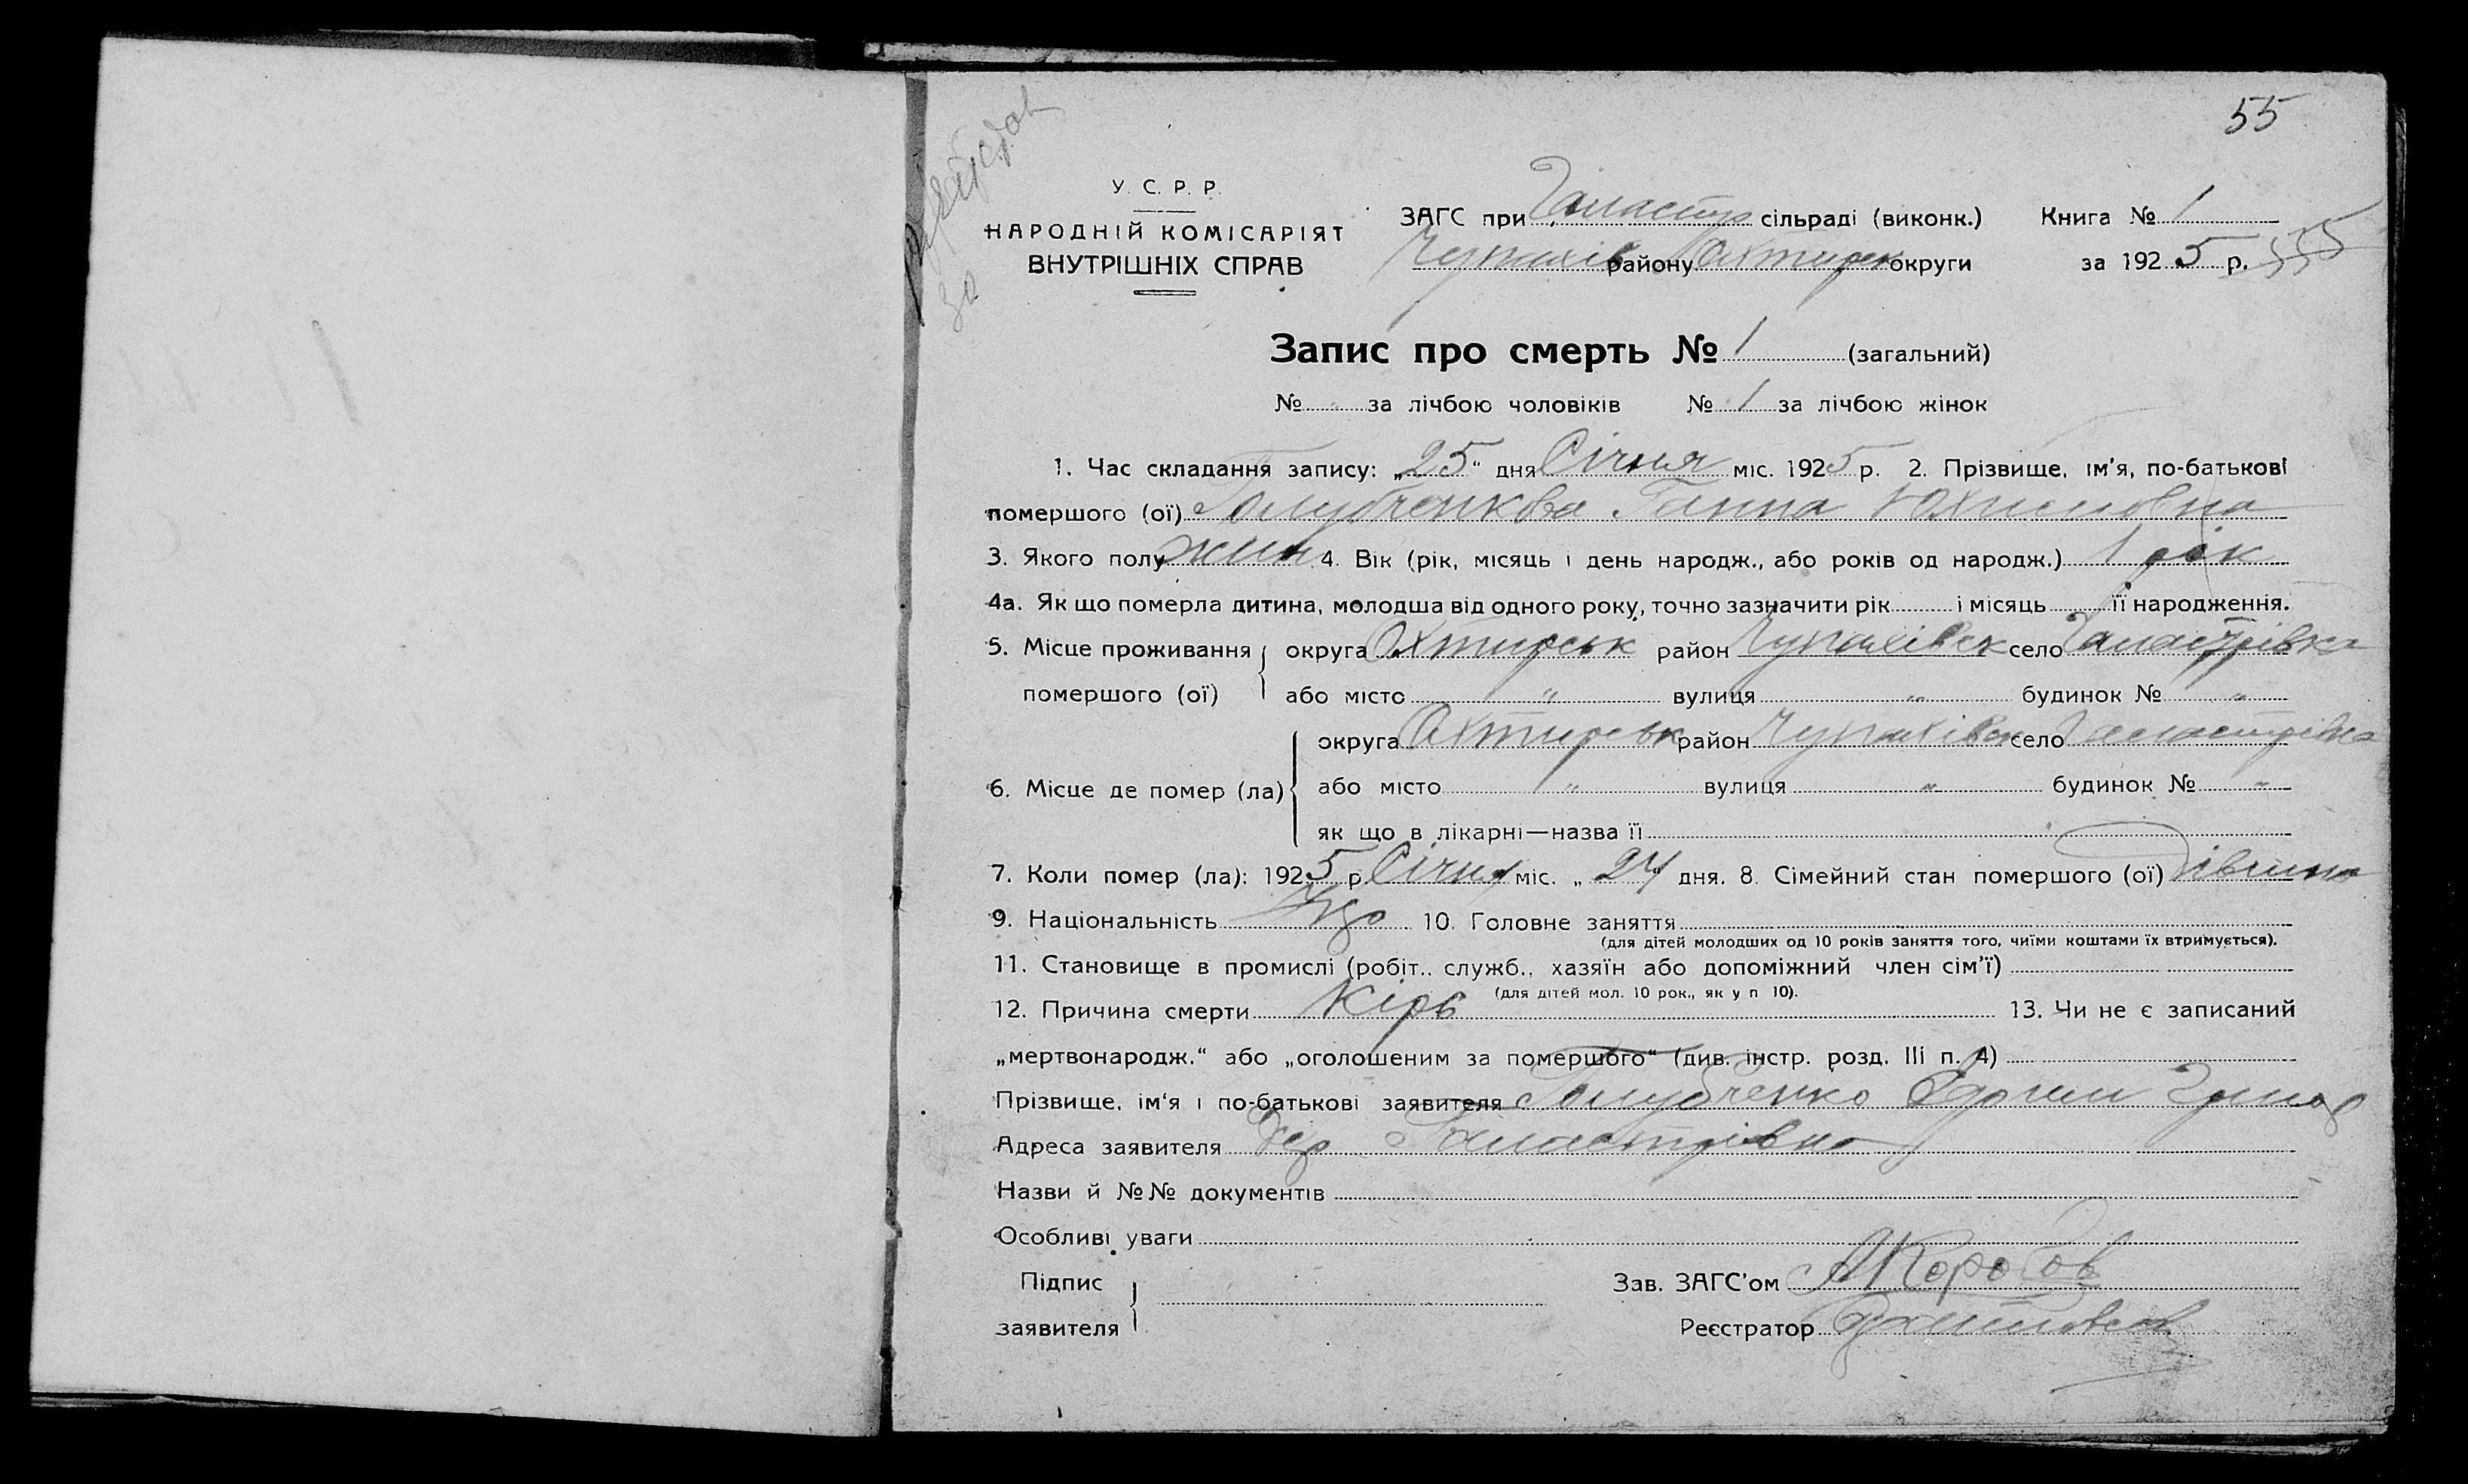 55
У. С. Р. Р.
НАРОДНІЙ КОМІСАРІЯТ
ВНУТРІШНІХ СПРАВ
ЗАГС при Галастр сільраді (виконк.)
Чупахів району Охтирськ округи
Книга № 1
за 1925 р.
555
Запис про смерть № 1 (загальний)
№ за лічбою чоловіків № 1 за лічбою жінок
1. Час складання запису: „25“ дня Січня міс. 1925 р. 2. Прізвище, ім'я, по-батькові
помершого (ої) Голубченкова Ганна Юхимовна
3. Якого полу жин 4. Вік (рік, місяць і день народж., або років од народж.) 1 рік
4а. Як що померла дитина, молодша від одного року, точно зазначити рік і місяць її народження.
5. Місце проживання округа Охтирськ район Чупахівск село Галастрівка
помершого (ої) або місто " вулиця " будинок № "
округа Охтирськ район Чупахівск село Галастрівка
6. Місце де помер (ла) або місто " вулиця " будинок № "
як що в лікарні—назва її
7. Коли помер (ла): 1925 р. Січня міс. „24“ дня. 8. Сімейний стан помершого (ої) дівчина
9. Національність Укр 10. Головне заняття
(для дітей молодших од 10 років заняття того, чиїми коштами їх втримується).
11. Становище в промислі (робіт., служб., хазяїн або допоміжний член сім'ї)
(для дітей мол. 10 рок., як у п 10).
12. Причина смерти Кірь 13. Чи не є записаний
„мертвонародж.“ або „оголошеним за помершого“ (див. інстр. розд. III п. 4)
Прізвище, ім'я і по-батькові заявителя Голубченко
Адреса заявителя Дер Галастрівка
Назви й №№ документів
Особливі уваги
Підпис
заявителя
Зав. ЗАГС'ом АКоротов
Реєстратор